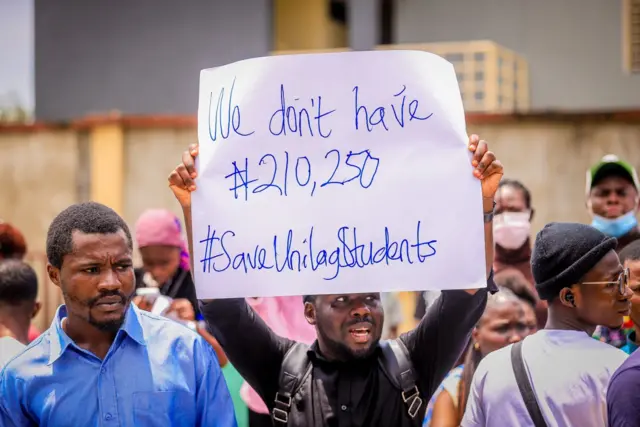 We don't have
₦210,250
#SaveUnilagStudents